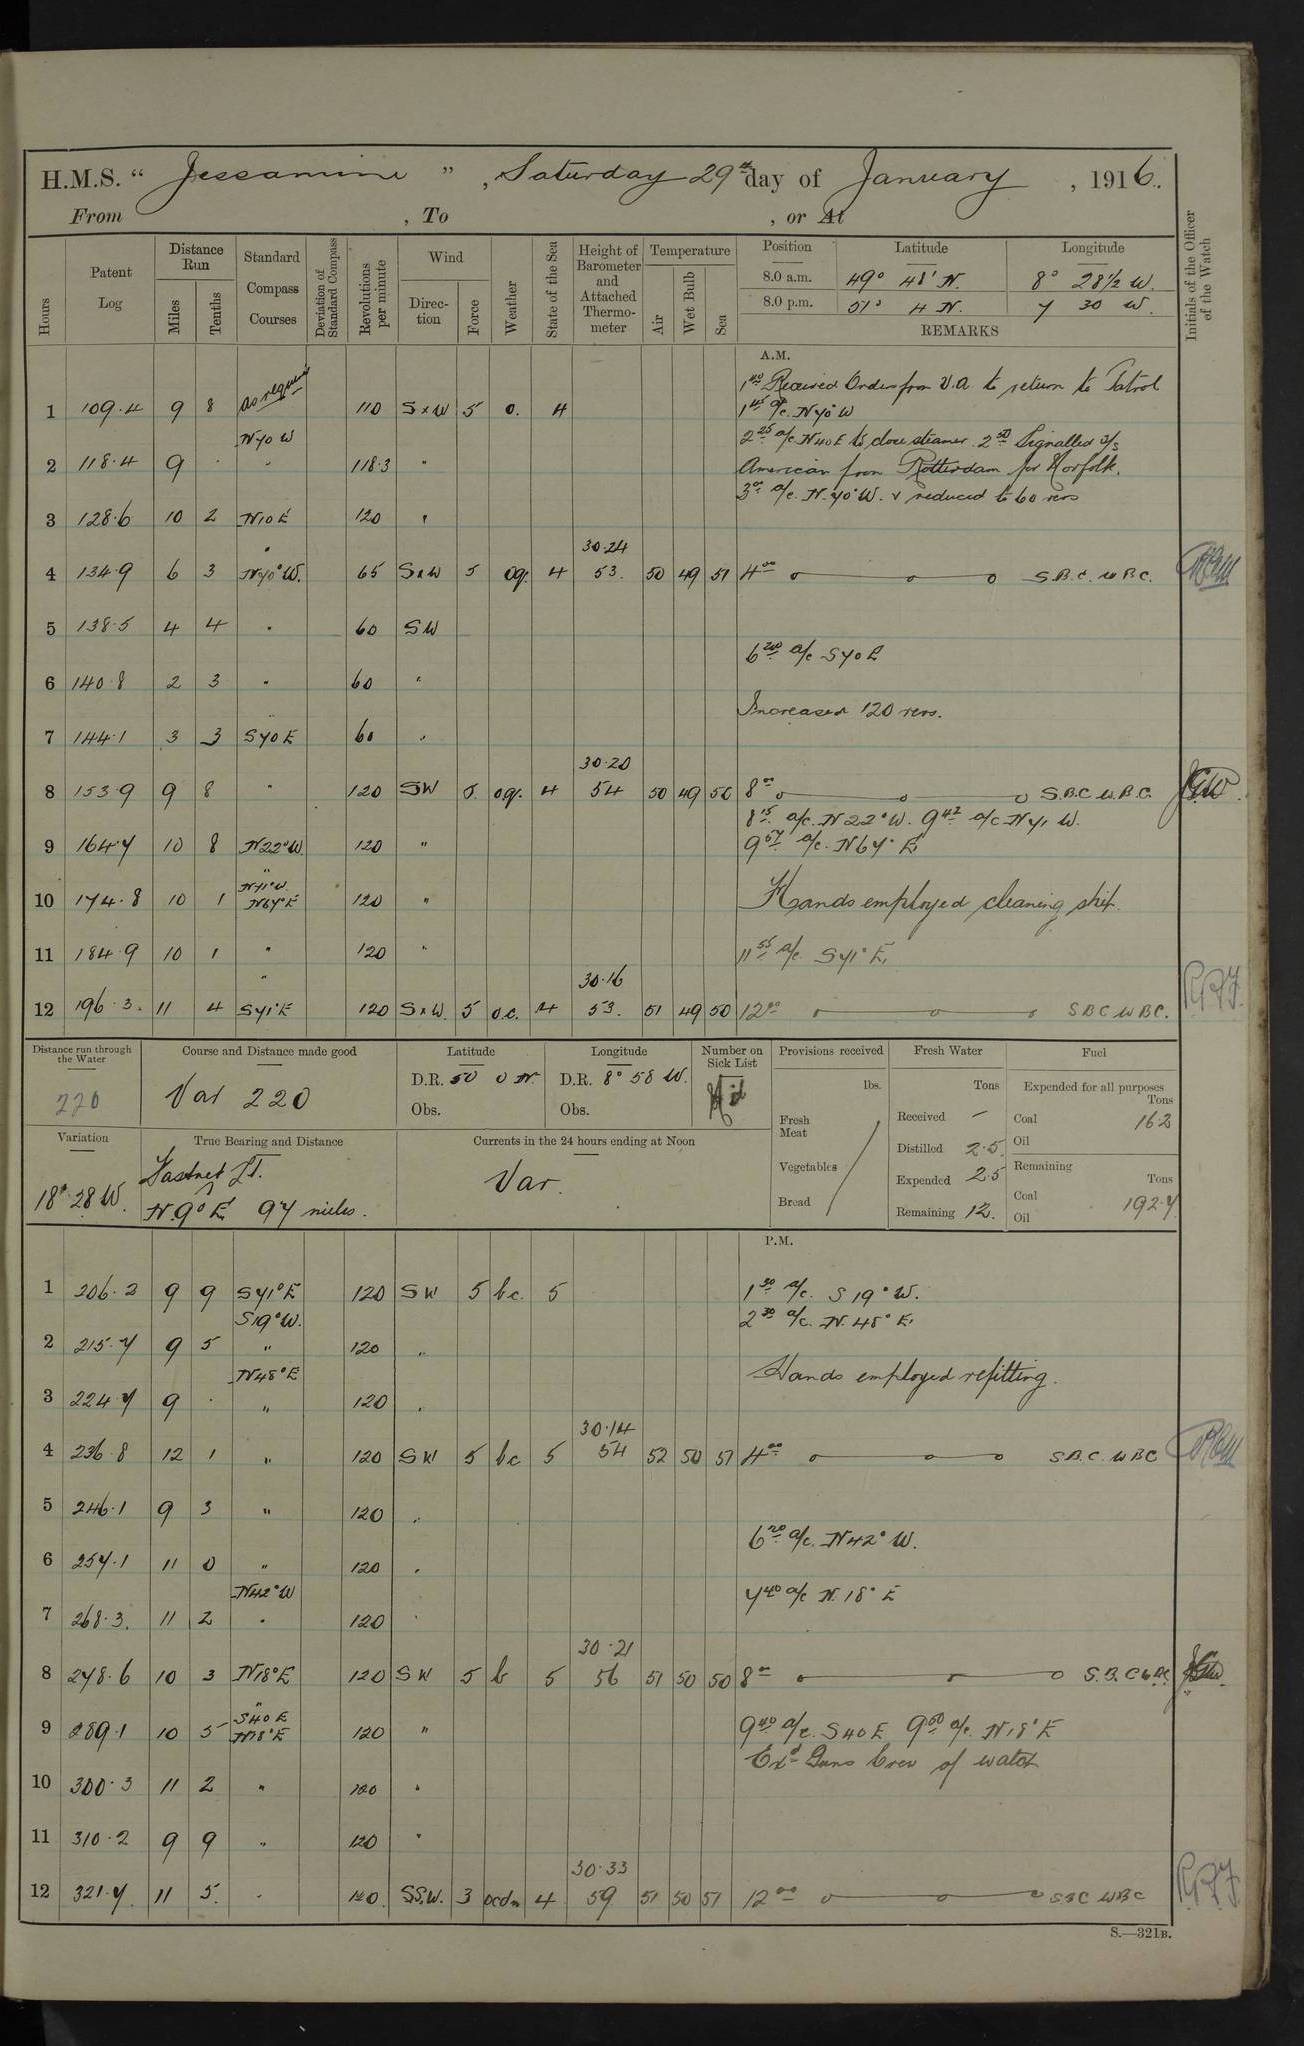 H.M.S. " Jessamine ", Saturday 29th day of January, 1916.
From , To , or At
Hours
Patent Log
Distance Run
Miles
Tenths
Standard Compass Courses
Deviation of Standard Compass
Revolutions per minute
Wind
Direction
Force
Weather
State of the Sea
Height of Barometer and Attached Thermometer
Temperature
Air
Wet Bulb
Sea
Position Latitude Longitude
8.0 a.m. 49° 48' N. 8° 28½ W.
8.0 p.m. 51° 4 N. 7 30 W.
REMARKS
Initials of the Officer of the Watch
A.M.
1.40 Received Orders from V.A. to return to Patrol
1 109.4 9 8 as requisite 110 SxW 5 o. 4 1.45 a/c. N70°W
N70W 2.25 a/c N40E to close steamer 2.50 Signalled S/S
2 118.4 9 · " 118.3 " American from Rotterdam for Norfolk.
3.00 a/c. N.70°W. & reduced to 60 revs
3 128.6 10 2 N10E 120 "
30.24
4 134.9 6 3 N70°W. 65 SxW 5 og. 4 53. 50 49 51 4.00 S.B.C. W.B.C.
5 138.5 4 4 " 60 SW
6.20 a/c S70E
6 140.8 2 3 " 60 "
Increased 120 revs.
7 144.1 3 3 S70E 60 "
30.20
8 153.9 9 8 " 120 SW 5. og. 4 54 50 49 50 8.00 S.B.C W.B.C.
8.15 a/c. N22°W. 9.42 a/c N71 W.
9 164.7 10 8 N22°W. 120 " 9.57 a/c. N67°E
N71°W.
10 174.8 10 1 N67°E 120 " Hands employed cleaning ship.
11 184.9 10 1 " 120 " 11.55 a/c. S71°E,
30.16
12 196.3. 11 4 S71°E 120 SxW. 5 o.c. 4 53. 51 49 50 12.00 SBC WBC.
Distance run through the Water
220
Course and Distance made good
Var 220
Latitude
D.R. 50 0 N.
Obs.
Longitude
D.R. 8° 58 W.
Obs.
Number on Sick List
Nil
Provisions received
lbs.
Fresh Meat
Vegetables
Bread
Fresh Water
Tons
Received –
Distilled 2.5
Expended 2.5
Remaining 12.
Fuel
Expended for all purposes
Tons
Coal 16.2
Oil
Remaining
Tons
Coal 192.7
Oil
Variation
18° 28 W.
True Bearing and Distance
Fastnet Lt.
N.9°E 97 miles.
Currents in the 24 hours ending at Noon
Var.
P.M.
1 206.2 9 9 S71°E 120 SW 5 bc. 5 1.30 a/c. S19°W.
S19°W. 2.30 a/c. N.48°E,
2 215.7 9 5 " 120 "
N48°E Hands employed refitting.
3 224.7 9 · " 120 "
30.14
4 236.8 12 1 " 120 SW 5 bc 5 54 52 50 51 4.00 S.B.C. WBC
5 246.1 9 3 " 120 "
6.20 a/c. N42°W.
6 257.1 11 0 " 120 "
N42°W 7.40 a/c N.18°E
7 268.3. 11 2 " 120 "
30.21
8 278.6 10 3 N18°E 120 SW 5 b 5 56 51 50 50 8.00 S.B.C W.B.C.
S40E
9 289.1 10 5 N18°E 120 " 9.40 a/c. S40E 9.50 a/c. N18°E
Exd Guns Crew of watch
10 300.3 11 2 " 120 "
11 310.2 9 9 " 120 "
30.33
12 321.7. 11 5. " 120. SSW. 3 ocdm 4 59 51 50 51 12.00 SBC WBC
S.—321B.